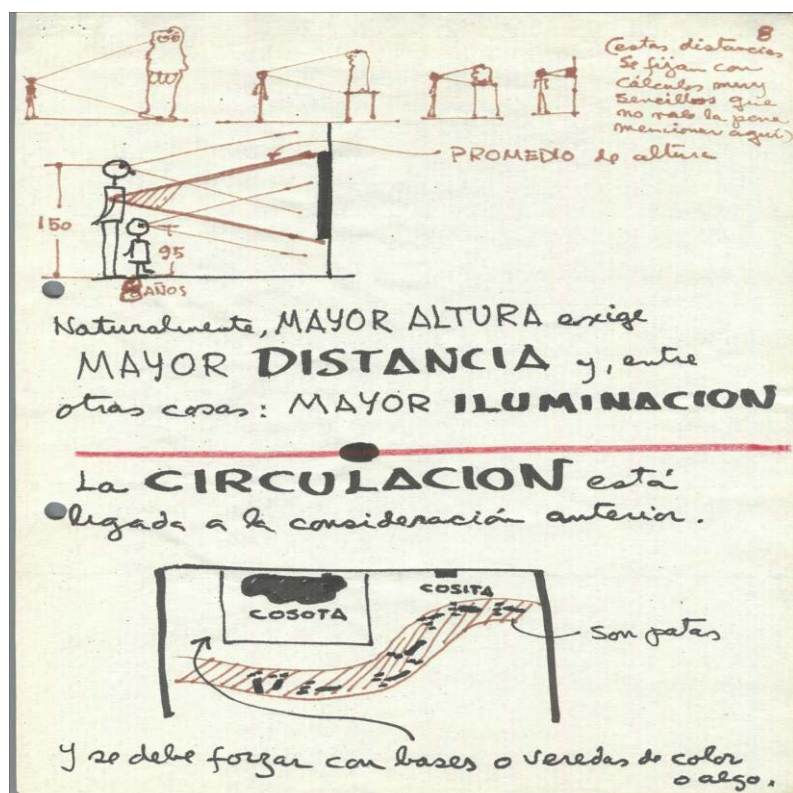 8
(estas distancias
se fijan con
cálculos muy
sencillos que
no vale la pena
mencionar aquí)
PROMEDIO de altura
150
95
8 AÑOS
Naturalmente, MAYOR ALTURA exige
MAYOR DISTANCIA y, entre
otras cosas: MAYOR ILUMINACION
La CIRCULACION está
ligada a la consideración anterior.
COSOTA
COSITA
Son patas
Y se debe forzar con bases o veredas de color
o algo.